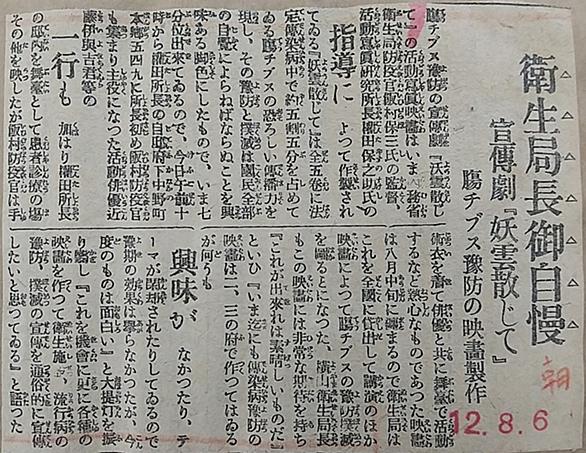 衛生局長御自慢
宣傳劇『妖雲散じて』
腸チブス豫防の映畫製作
腸チブス豫防の宣傳劇『妖雲散じ
て』の活動寫眞映畫はいま内務省
衛生局防疫官飯村保三氏の監督、
活動寫眞研究所長權田保之助氏の
指導に
よつて作製され
てゐる『妖雲散じて』は全五卷に法
定傳染病中で約五割五分を占めて
ゐる腸チブスの恐ろしい傳播力を
現し、その豫防と撲滅は國民全部
の自覺によらねばならぬことを興
味ある脚色にしたもので、いま七
分位出來てゐるので、今日午前十
時から權田所長の自邸府下中野町
本郷五四九に所長初め飯村防疫官
も集まり主役になつた活動俳優近
藤伊與吉君等の
一行も
加はり權田所長
の邸内を舞臺として患者診療の場
その他を映したが飯村防疫官は手
術衣を着て俳優と共に舞臺で活動
するなど熱心なものであつた映畫
は八月中旬に纏まるので衛生局は
これを全國に貸出して講演のほか
映畫によつて腸チブスの豫防撲滅
を圖ることになつた、横山衛生局長
もこの映畫には非常な期待を持ち
『これが出來れば素晴しいものだ』
といひ『いま迄にも傳染病豫防の
映畫は二、三の府で作つてはゐる
が何うも
興味が
なかつたり、テ
ーマが閑却されたりしてゐるので
豫期の效果は擧らなかつたが、今
度のものは面白い』と大提灯を振
り廻し『これを機會に更に各種の
映畫を作つて衛生施設、流行病の
豫防、撲滅の宣傳を通俗的に宣傳
したいと思つてゐる』と語つた
朝
12.8.6